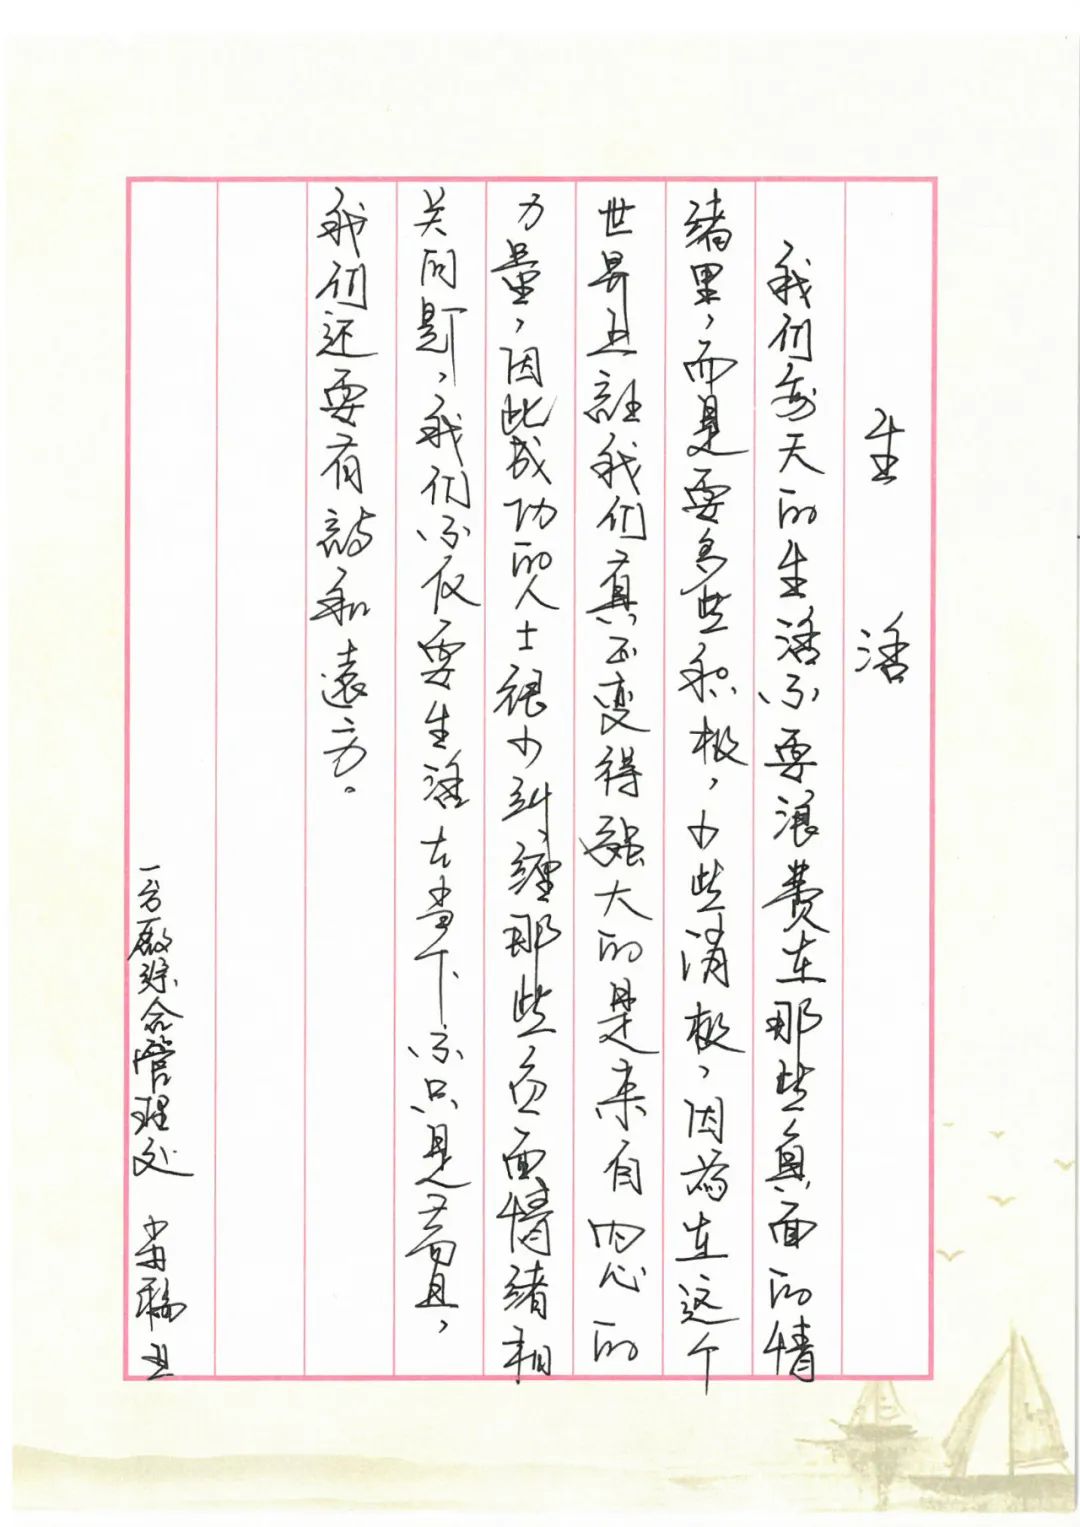 生活
我们每天的生活不要浪费在那些負面的情
绪里，而是要多些积极，少些消极，因為在这个
世界上能让我们真正变得强大的是来自内心的
力量，因此成功的人士很少纠缠那些负面情绪相
关问题，我们不仅要生活在当下不只是苟且，
我们还要有詩和遠方。
一分厰综合管理处